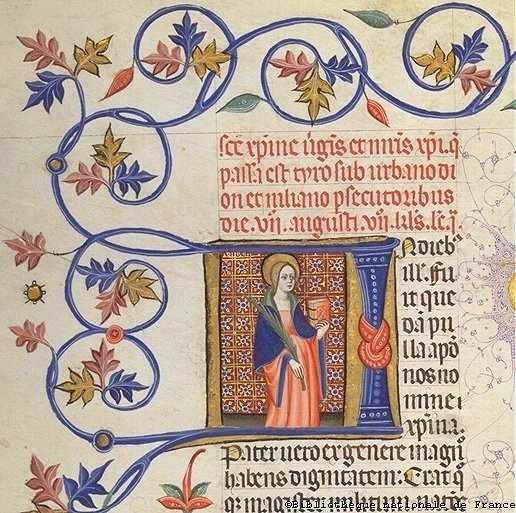 sce xpine ũgis et mris xpi. q̃
passa est tyro sub urbano di
on et iuliano psecutoribus
die. vii. augusti. viii. kls.
N dieb
ill. Fu
it que
dā pu
lla apđ
nos no
mine
xpina.
Pater uero ex genere magno
habens dignitatem: Erat q̃
q; magister militum
©Bibliothèque nationale de France